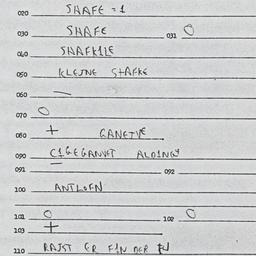 020 SHAFE = 1
030 SHAFE 031 O
040 SHAFKILE
050 KLEINE SHAFKE
060 —
070 O
080 + GANETVE
090 ALDINGY
091 092
100 ANTLOFN
101 O 102 O
103 +
110 RAJST ER FIN DER